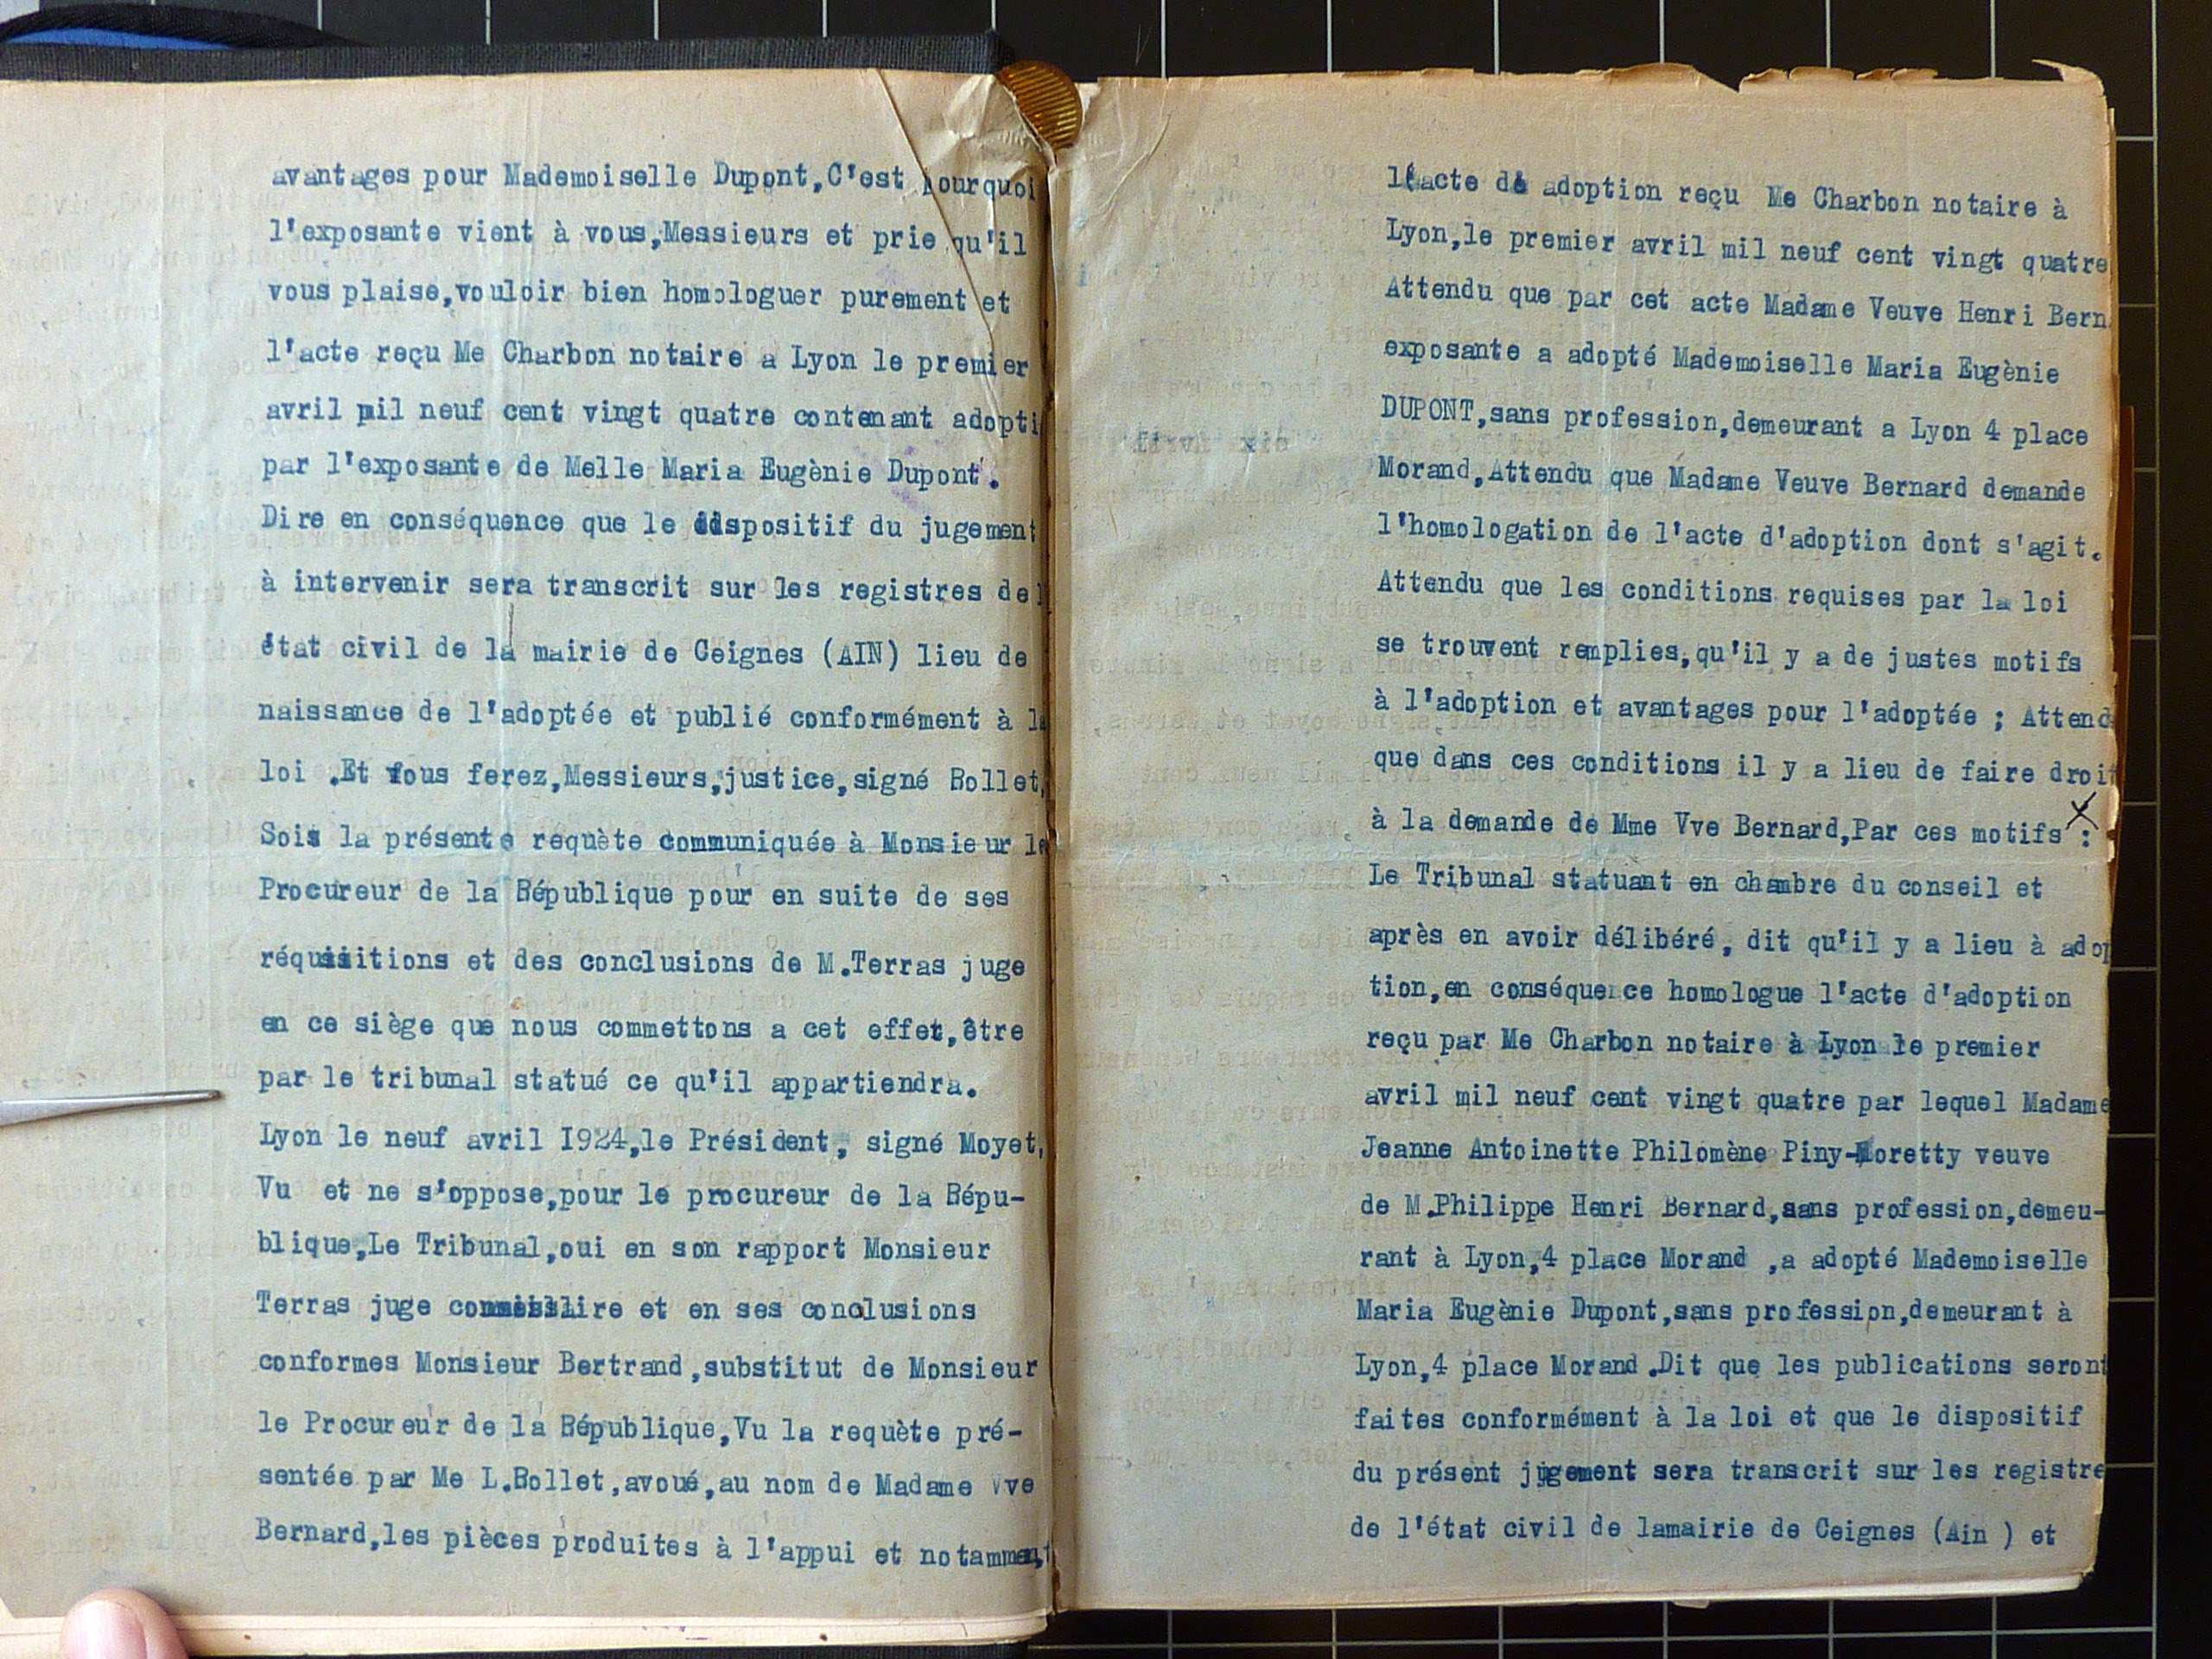 avantages pour Mademoiselle Dupont,C'est pourquoi
l'exposante vient à vous,Messieurs et prie qu'il
vous plaise,vouloir bien homologuer purement et
l'acte reçu Me Charbon notaire a Lyon le premier
avril mil neuf cent vingt quatre contenant adopti
par l'exposante de Melle Maria Eugènie Dupont.
Dire en conséquence que le dispositif du jugement
à intervenir sera transcrit sur les registres del
état civil de la mairie de Ceignes (AIN) lieu de
naissance de l'adoptée et publié conformément à la
loi .Et vous ferez,Messieurs,justice,signé Rollet,
Sois la présente requète communiquée à Monsieur le
Procureur de la République pour en suite de ses
réquisitions et des conclusions de M.Terras juge
en ce siège que nous commettons a cet effet,être
par le tribunal statué ce qu'il appartiendra.
Lyon le neuf avril I924,le Président, signé Moyet,
Vu et ne s'oppose,pour le procureur de la Répu-
blique,Le Tribunal,oui en son rapport Monsieur
Terras juge et en ses conclusions
conformes Monsieur Bertrand,substitut de Monsieur
le Procureur de la République,Vu la requète pré-
sentée par Me L.Rollet,avoué,au nom de Madame Vve
Bernard,les pièces produites à l'appui et notamment
l'acte de adoption reçu Me Charbon notaire à
Lyon,le premier avril mil neuf cent vingt quatre
Attendu que par cet acte Madame Veuve Henri Bern
exposante a adopté Mademoiselle Maria Eugènie
DUPONT,sans profession,demeurant a Lyon 4 place
Morand,Attendu que Madame Veuve Bernard demande
l'homologation de l'acte d'adoption dont s'agit.
Attendu que les conditions requises par la loi
se trouvent remplies,qu'il y a de justes motifs
à l'adoption et avantages pour l'adoptée ; Attend
que dans ces conditions il y a lieu de faire droit
à la demande de Mme Vve Bernard,Par ces motifs :
Le Tribunal statuant en chambre du conseil et
après en avoir délibéré, dit qu'il y a lieu à adop
tion,en conséquence homologue l'acte d'adoption
reçu par Me Charbon notaire à Lyon le premier
avril mil neuf cent vingt quatre par lequel Madame
Jeanne Antoinette Philomène Piny-Moretty veuve
de M.Philippe Henri Bernard,sans profession,demeu-
rant à Lyon,4 place Morand ,a adopté Mademoiselle
Maria Eugènie Dupont,sans profession,demeurant à
Lyon,4 place Morand.Dit que les publications seront
faites conformément à la loi et que le dispositif
du présent jugement sera transcrit sur les registre
de l'état civil de lamairie de Ceignes (Ain ) et